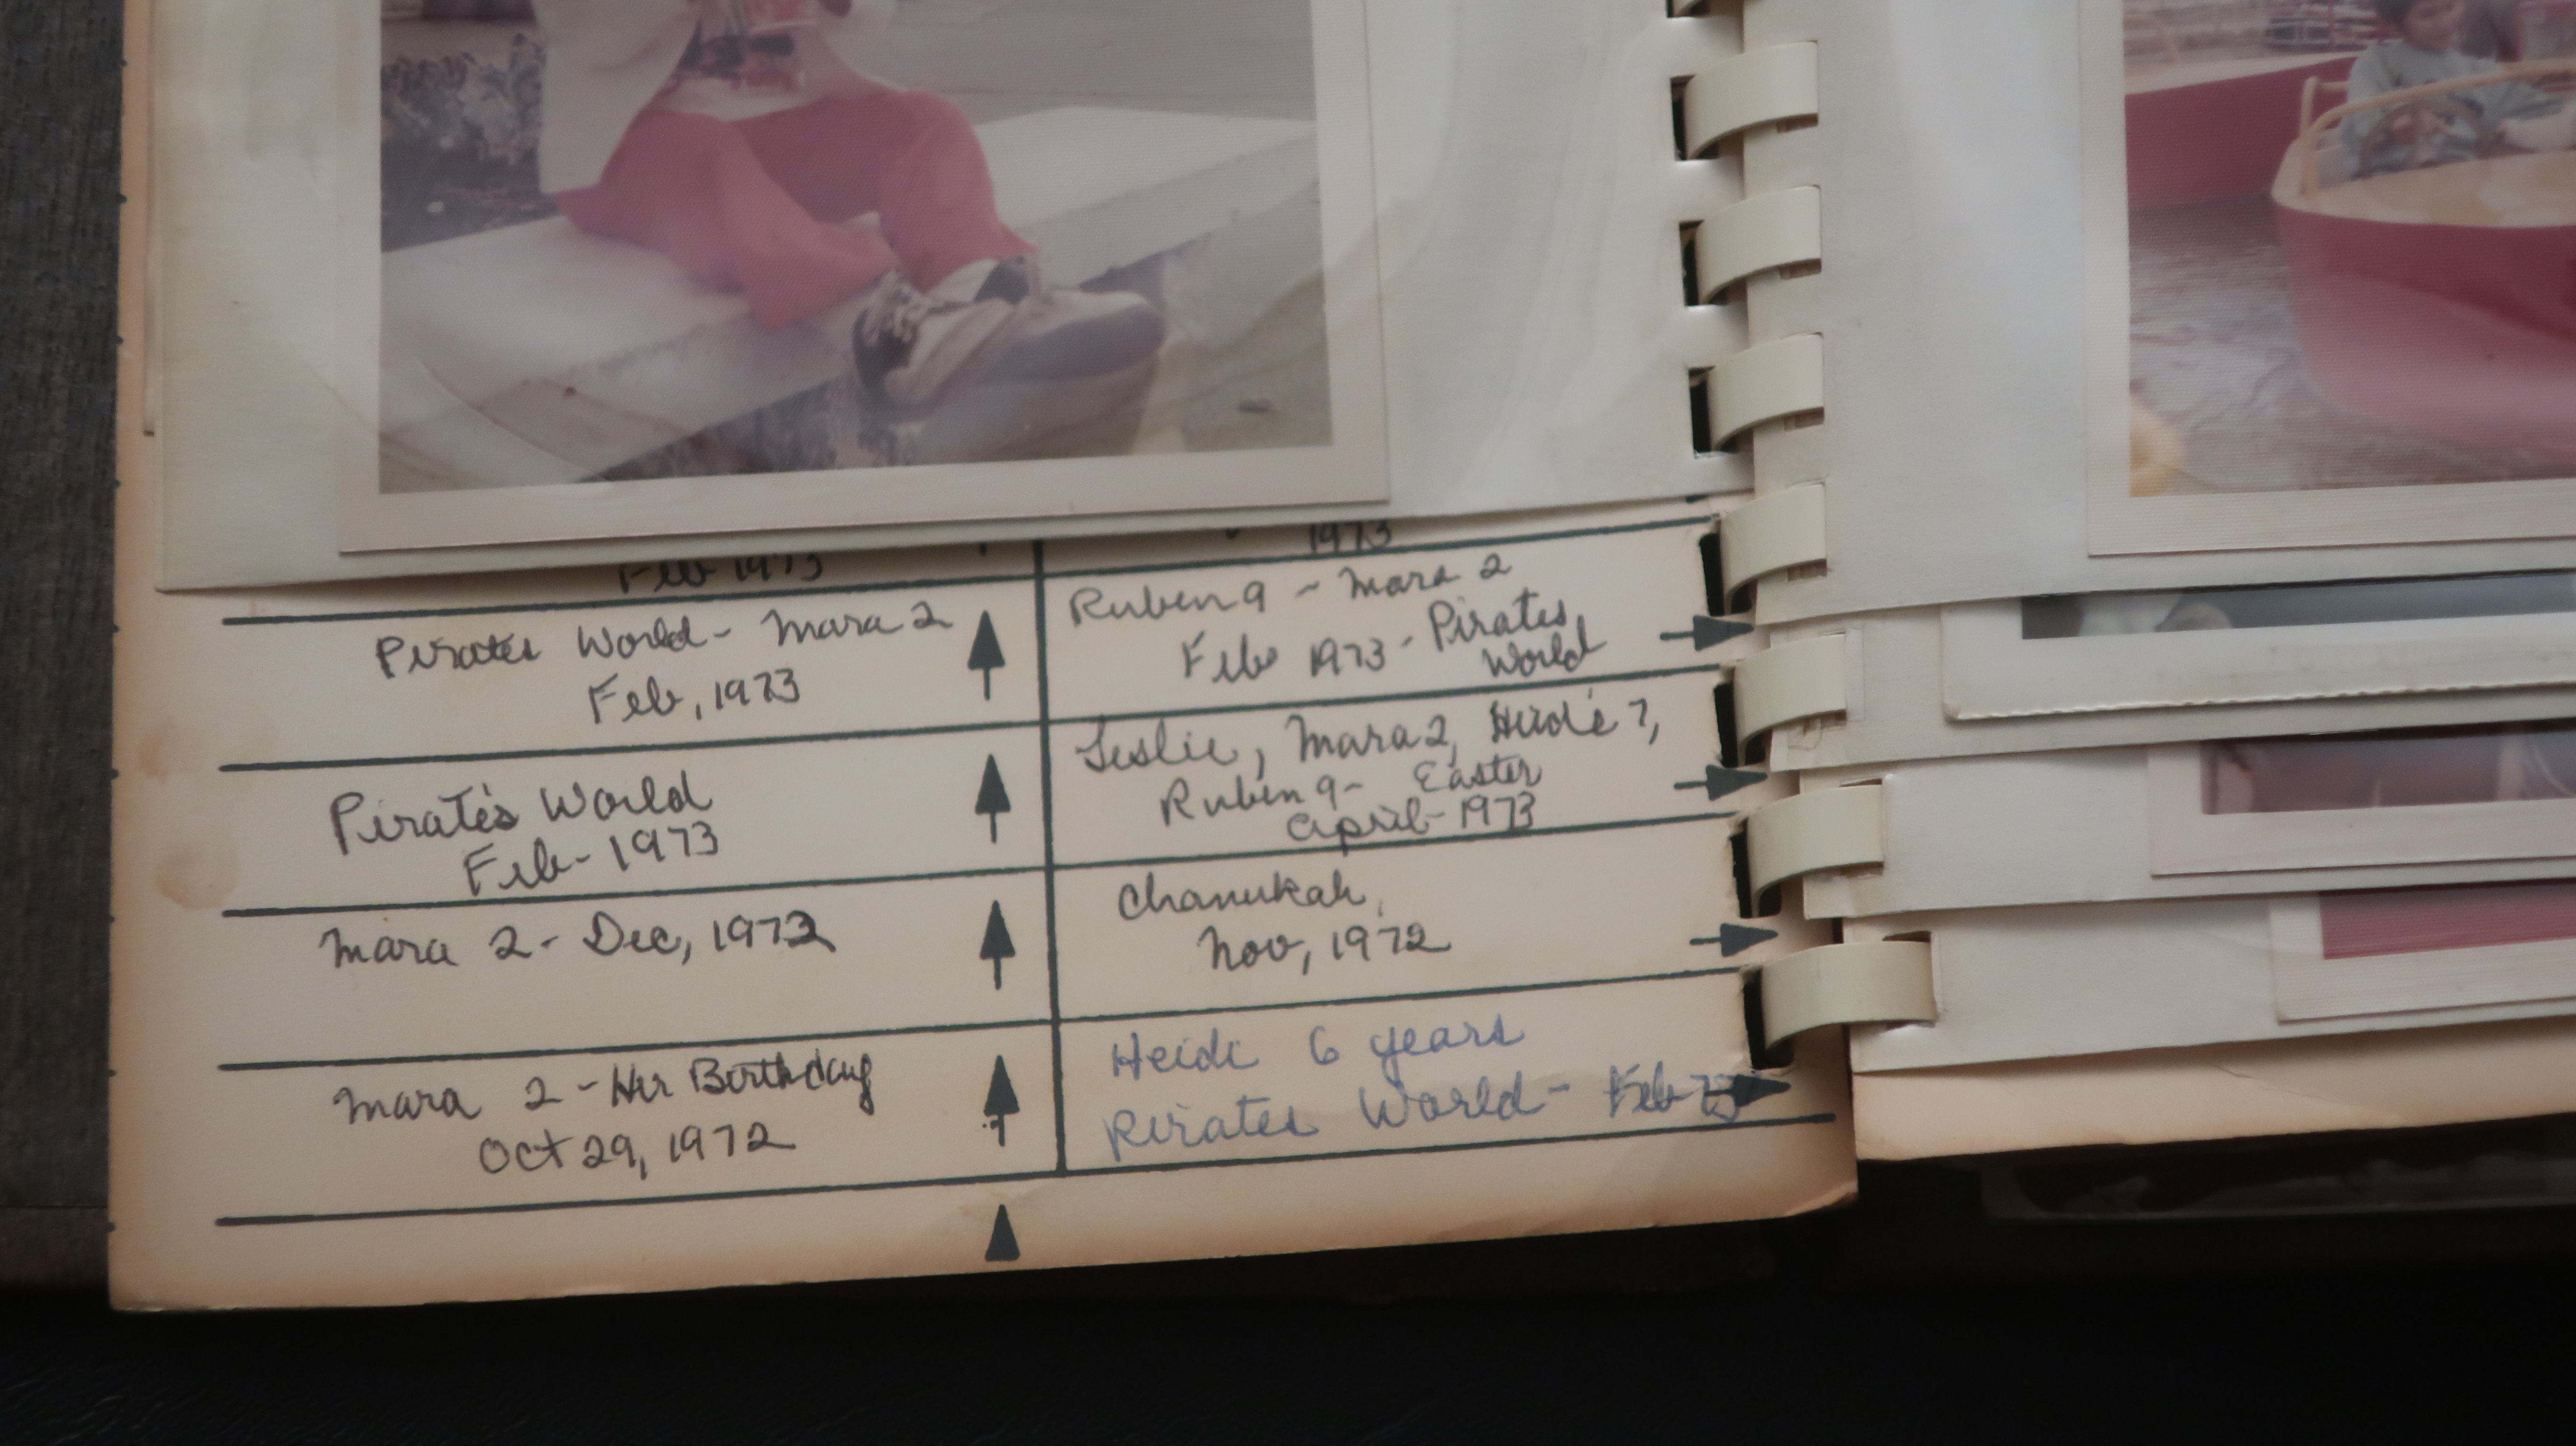 Feb 1973
Pirates World - Mara 2
Feb, 1973
Pirate's World
Feb - 1973
Mara 2 - Dec, 1972
Mara 2 - Her Birthday
Oct 29, 1972
1973
Ruben 9 - Mara 2
Feb 1973 - Pirates
World
Leslie, Mara 2, Heidi 7,
Ruben 9 - Easter
April - 1973
Chanukah,
Nov, 1972
Heidi 6 years
Pirates World - Feb 73